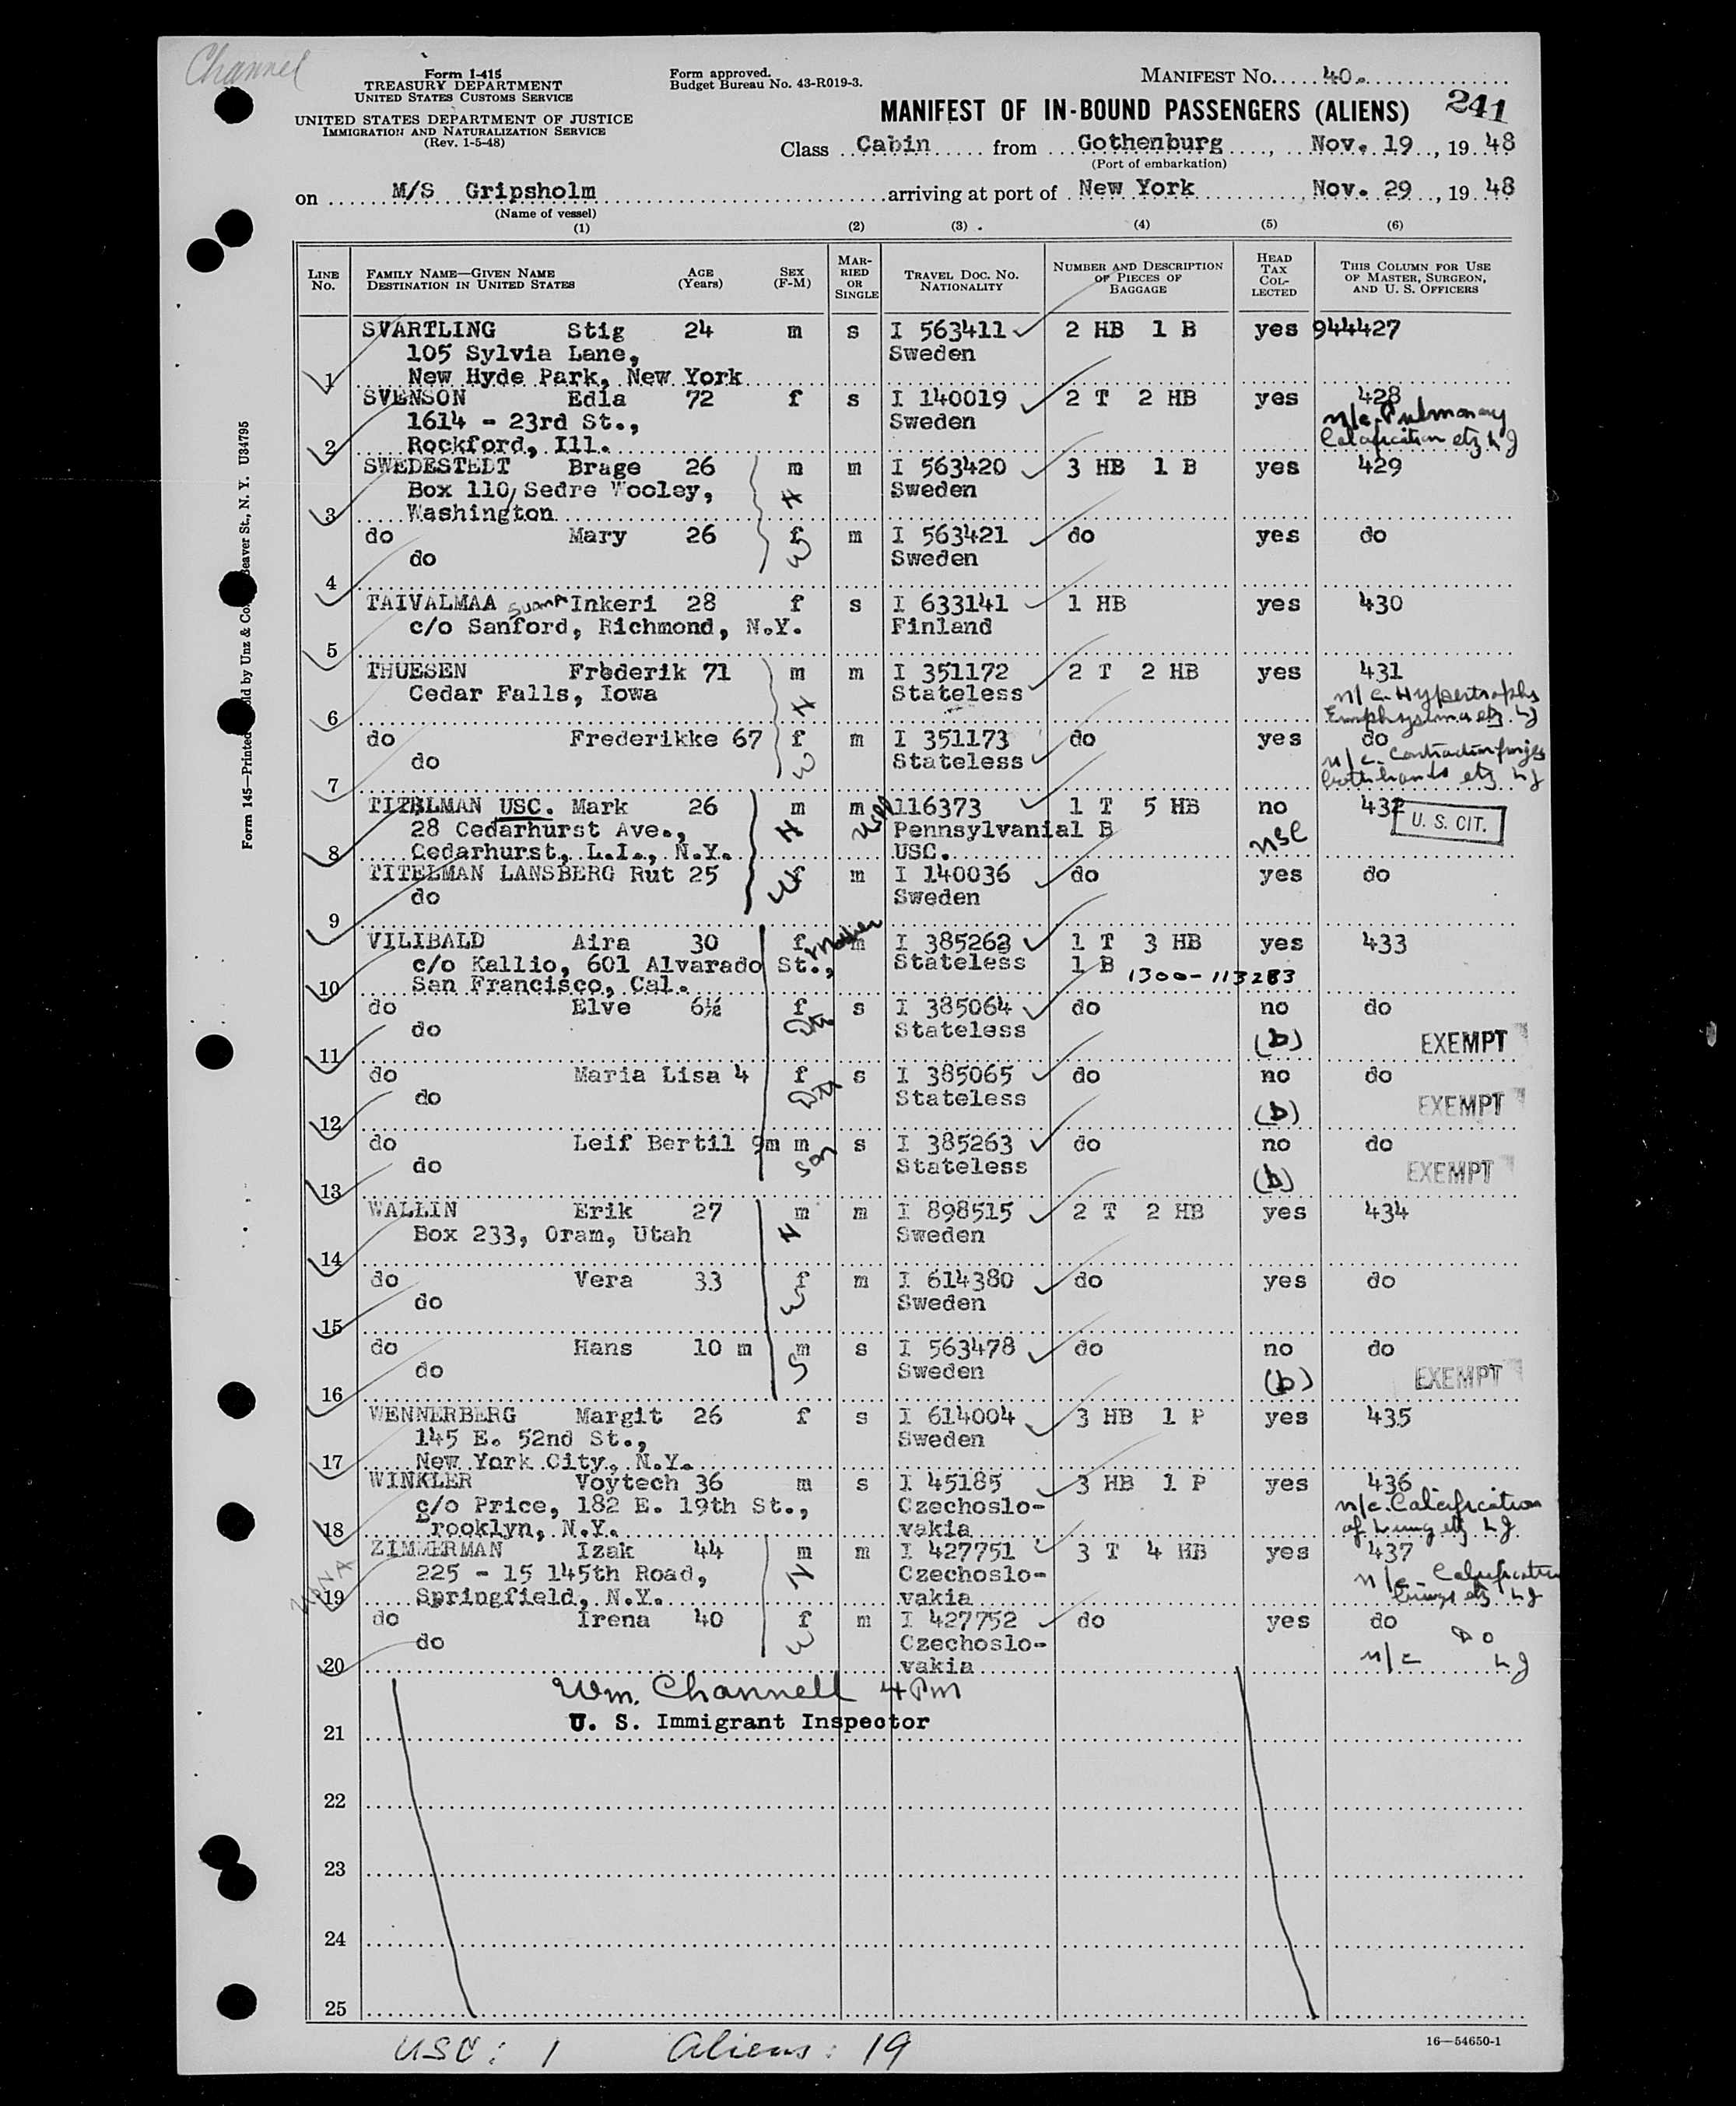 Channel
Form I-415
TREASURY DEPARTMENT
UNITED STATES CUSTOMS SERVICE
UNITED STATES DEPARTMENT OF JUSTICE
IMMIGRATION AND NATURALIZATION SERVICE
(Rev. 1-5-48)
Form approved.
Budget Bureau No. 43-R019-3.
MANIFEST No. 40.
MANIFEST OF IN-BOUND PASSENGERS (ALIENS) 241
Class Cabin from Gothenburg, Nov. 19, 1948
(Port of embarkation)
on M/S Gripsholm arriving at port of New York, Nov. 29, 1948
(Name of vessel)
(1) (2) (3) (4) (5) (6)
LINE No. FAMILY NAME—GIVEN NAME DESTINATION IN UNITED STATES AGE (Years) SEX (F-M) MARRIED OR SINGLE TRAVEL DOC. NO. NATIONALITY NUMBER AND DESCRIPTION OF PIECES OF BAGGAGE HEAD TAX COLLECTED THIS COLUMN FOR USE OF MASTER, SURGEON, AND U. S. OFFICERS
SVARTLING Stig 24 m s I 563411 2 HB 1 B yes 944427
105 Sylvia Lane, Sweden
1 New Hyde Park, New York
SVENSON Edla 72 f s I 140019 2 T 2 HB yes 428
1614 - 23rd St., Sweden n/c Pulmonary
2 Rockford, Ill. Calcification etz LJ
SWEDESTEDT Brage 26 m m I 563420 3 HB 1 B yes 429
Box 110, Sedre Wooley, H Sweden
3 Washington
do Mary 26 f m I 563421 do yes do
do W Sweden
4
TAIVALMAA Inkeri 28 f s I 633141 1 HB yes 430
c/o Sanford, Richmond, N.Y. Finland
5
THUESEN Frederik 71 m m I 351172 2 T 2 HB yes 431
Cedar Falls, Iowa H Stateless n/c. Hypertrophy
6 Emphysema etz. LJ
do Frederikke 67 f m I 351173 do yes do
do W Stateless n/c. Contraction
7 both hands etz LJ
TITELMAN USC. Mark 26 m m 116373 1 T 5 HB no 432 U. S. CIT.
28 Cedarhurst Ave., H Pennsylvanial B USC
8 Cedarhurst, L.I., N.Y. USC.
TITELMAN LANSBERG Rut 25 f m I 140036 do yes do
do W Sweden
9
VILIBALD Aira 30 f Mother m I 385262 1 T 3 HB yes 433
c/o Kallio, 601 Alvarado St., Stateless 1 B
10 San Francisco, Cal. 1300-113283
do Elve 6½ f s I 385064 do no do
do Dtr Stateless (b) EXEMPT
11
do Maria Lisa 4 f s I 385065 do no do
do Dtr Stateless (b) EXEMPT
12
do Leif Bertil 9m m s I 385263 do no do
do son Stateless (b) EXEMPT
13
WALLIN Erik 27 m m I 898515 2 T 2 HB yes 434
Box 233, Oram, Utah H Sweden
14
do Vera 33 f m I 614380 do yes do
do W Sweden
15
do Hans 10 m m s I 563478 do no do
do S Sweden (b) EXEMPT
16
WENNERBERG Margit 26 f s I 614004 3 HB 1 P yes 435
145 E. 52nd St., Sweden
17 New York City, N.Y.
WINKLER Voytech 36 m s I 45185 3 HB 1 P yes 436
c/o Price, 182 E. 19th St., Czechoslo- n/c. Calcification
18 rooklyn, N.Y. vakia of Lung etz LJ
ZIMMERMAN Izak 44 m m I 427751 3 T 4 HB yes 437
225 - 15 145th Road, H Czechoslo- n/c Calcification
19 Springfield, N.Y. vakia Lungs etz LJ
do Irena 40 f m I 427752 do yes do
do W Czechoslo- Do
20 vakia n/c LJ
Wm. Channell 4 PM
U. S. Immigrant Inspector
21
22
23
24
25
16—54650-1
USC: 1 Aliens: 19
Form 145—Printed Sold by Unz & Co. Beaver St., N. Y. U34795